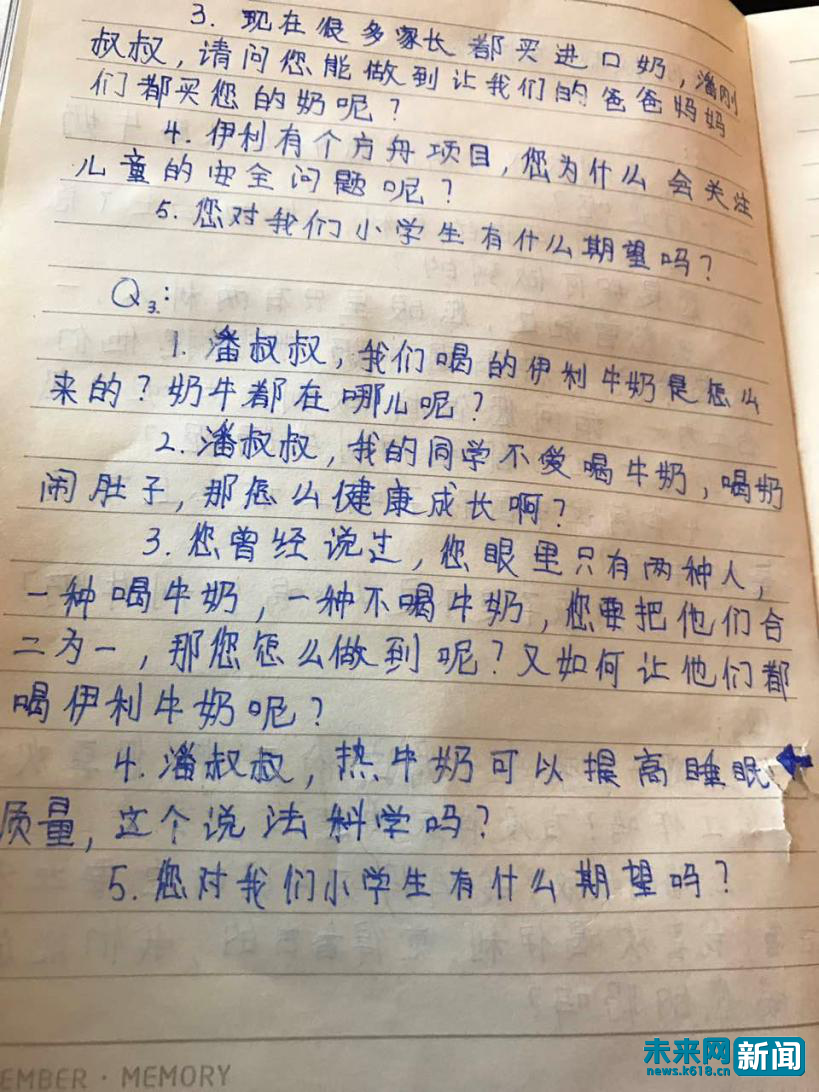 3. 现在很多家长都买进口奶，潘刚
叔叔，请问您能做到让我们的爸爸妈妈
们都买您的奶呢？
4. 伊利有个方舟项目，您为什么会关注
儿童的安全问题呢？
5. 您对我们小学生有什么期望吗？
Q3:
1. 潘叔叔，我们喝的伊利牛奶是怎么
来的？奶牛都在哪儿呢？
2. 潘叔叔，我的同学不爱喝牛奶，喝奶
闹肚子，那怎么健康成长啊？
3. 您曾经说过，您眼里只有两种人，
一种喝牛奶，一种不喝牛奶，您要把他们合
二为一，那您怎么做到呢？又如何让他们都
喝伊利牛奶呢？
4. 潘叔叔，热牛奶可以提高睡眠
质量，这个说法科学吗？
5. 您对我们小学生有什么期望吗？
EMBER · MEMORY
未来网 新闻
news.k618.cn